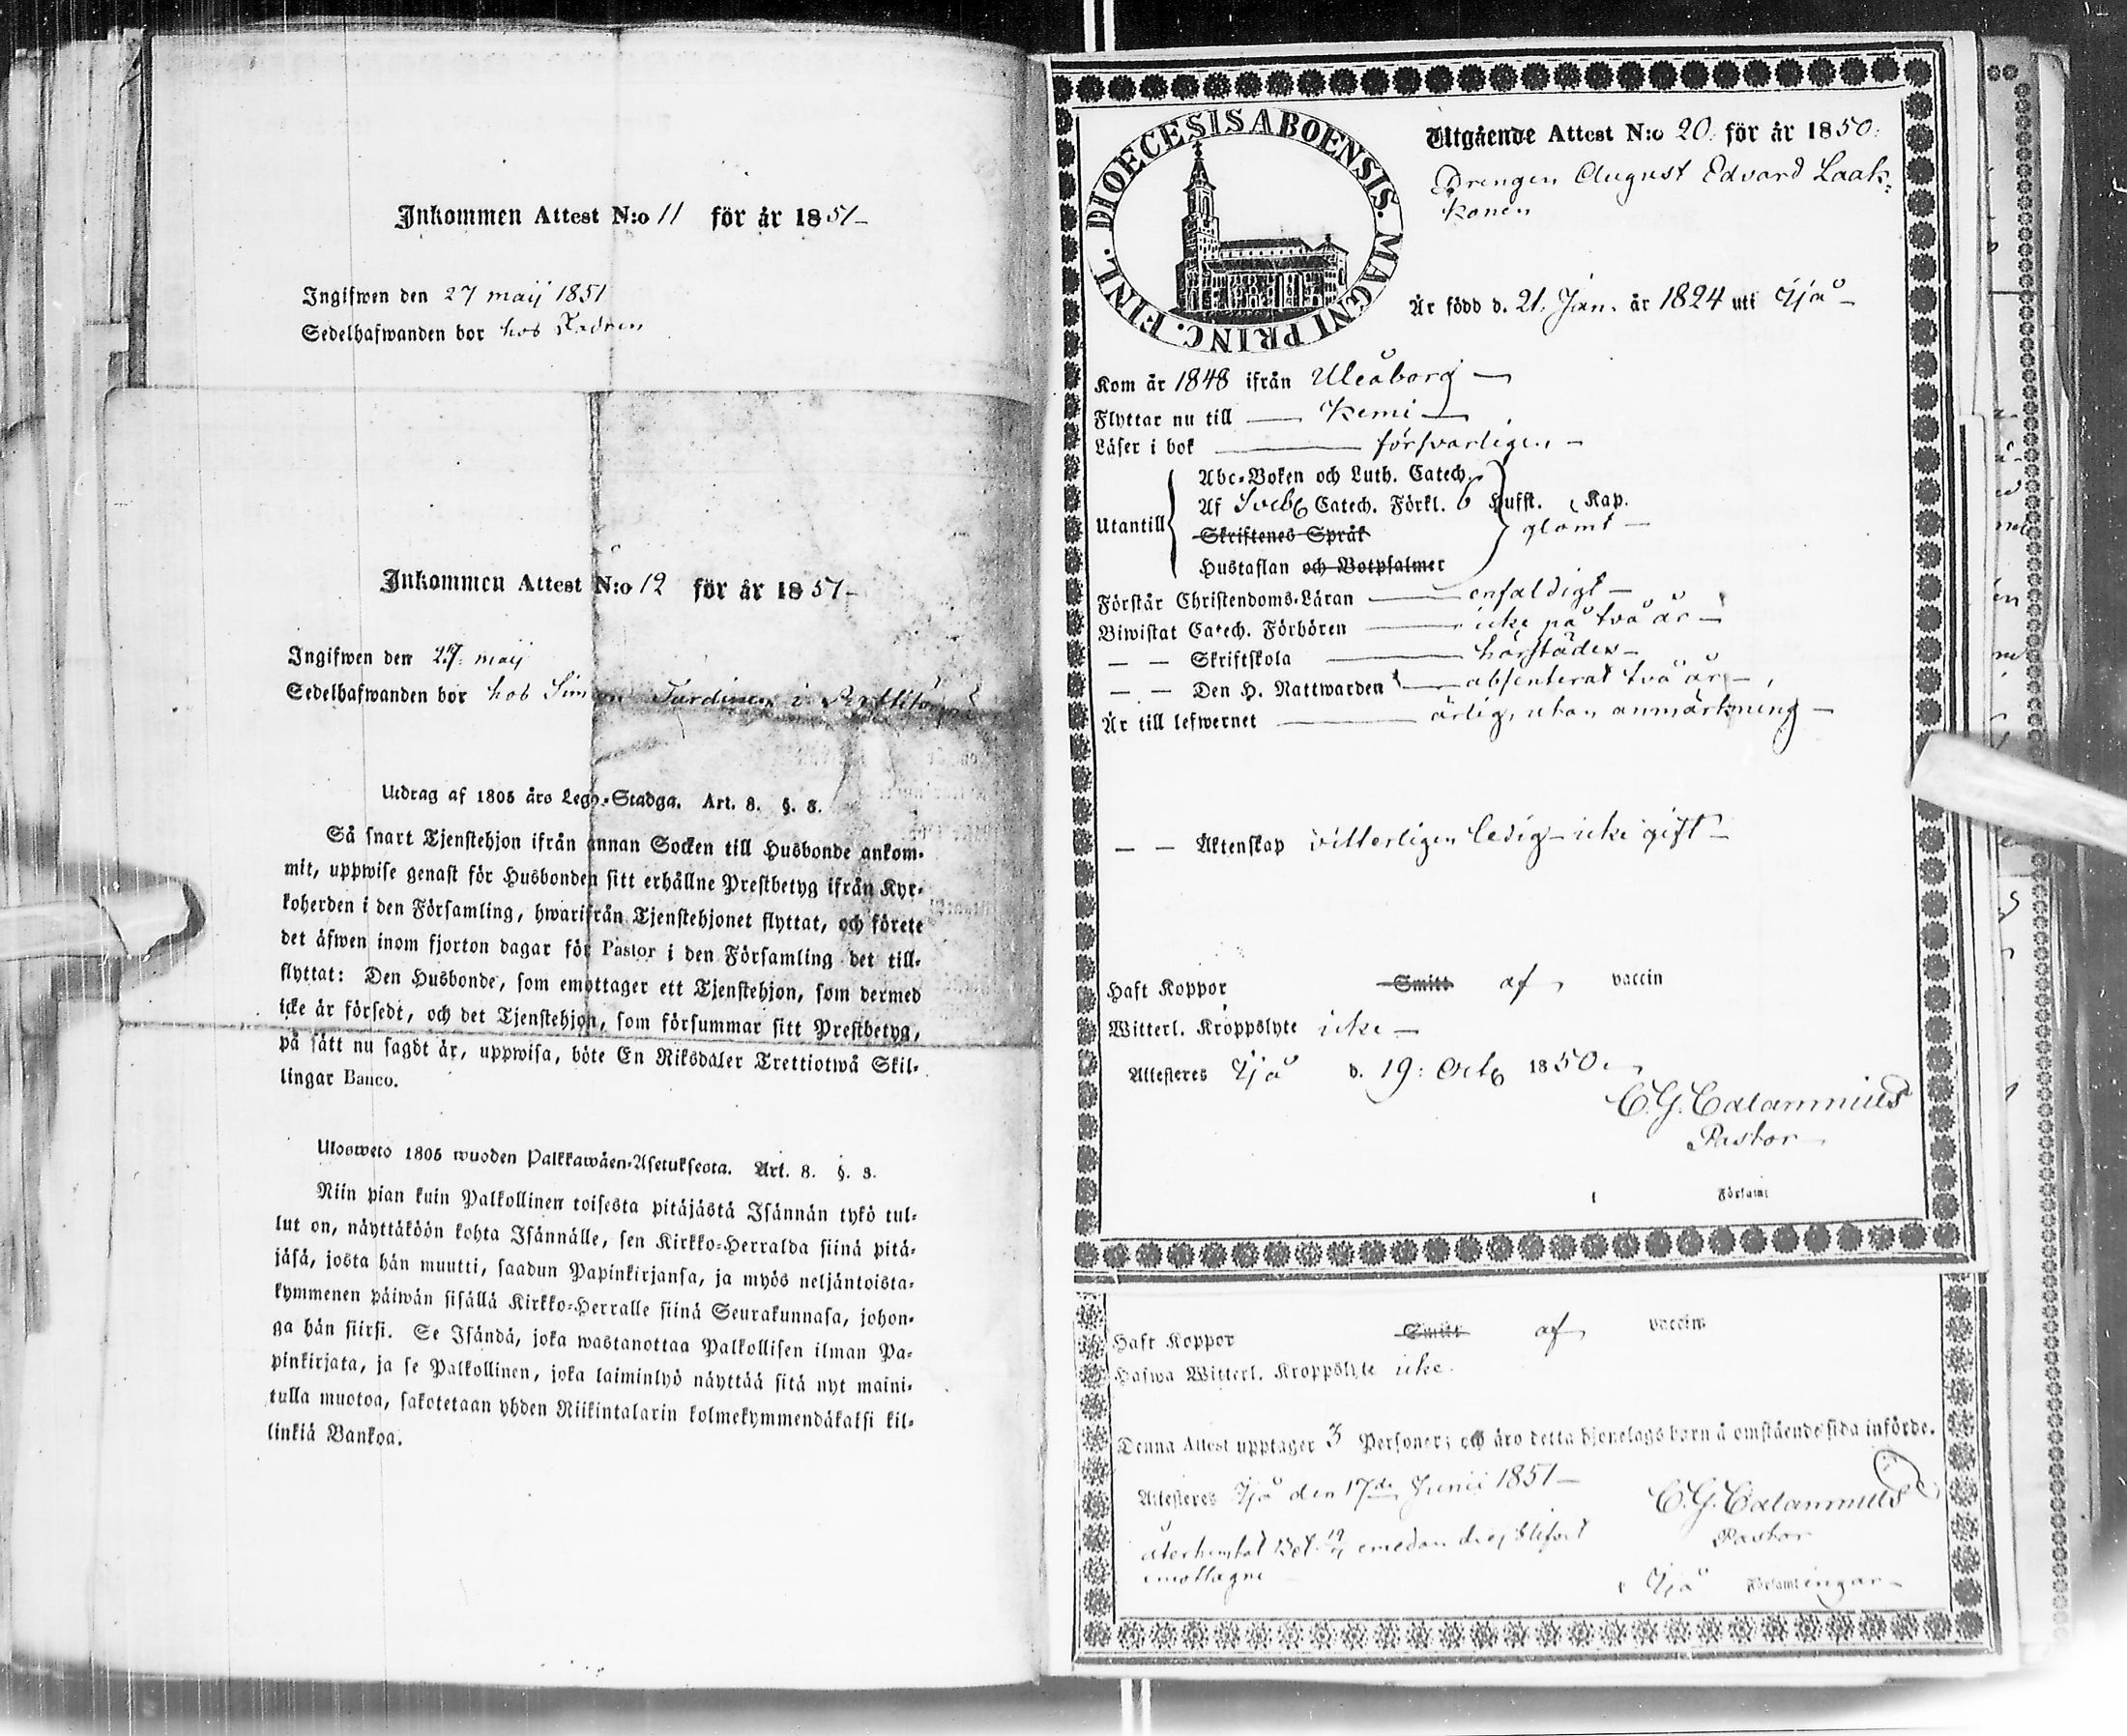 Inkommen Attest N:o 11 för år 1851
Ingifwen den 27 maij 1851
Sedelhafwanden bor hos
Inkommen Attest N:o 12 för år 1851
Ingifwen den 27. maij
Sedelhafwanden bor hos Simon
Utdrag af 1805 års Lego-Stadga. Art. 8. §. 3.
Så snart Tjenstehjon ifrån annan Socken till Husbonde ankom-
mit, uppwise genast för Husbonden sitt erhållne Prestbetyg ifrån Kyr-
koherden i den Församling, hwarifrån Tjenstehjonet flyttat, och förete
det äfwen inom fjorton dagar för Pastor i den Församling det till-
flyttat: Den Husbonde, som emottager ett Tjenstehjon, som dermed
icke är försedt, och det Tjenstehjon, som försummar sitt Prestbetyg,
på sätt nu sagdt är, uppwisa, böte En Riksdaler Trettiotwå Skil-
lingar Banco.
Ulosweto 1805 wuoden Palkkawäen-Asetuksesta. Art. 8. §. 3.
Niin pian kuin Palkollinen toisesta pitäjästä Isännän tykö tul-
lut on, näyttäköön kohta Isännälle, sen Kirkko-Herralda siinä pitä-
jäsä, josta hän muutti, saadun Papinkirjansa, ja myös neljäntoista-
kymmenen päiwän sisällä Kirkko-Herralle siinä Seurakunnasa, johon-
ga hän siirsi. Se Isändä, joka wastanottaa Palkollisen ilman Pa-
pinkirjata, ja se Palkollinen, joka laiminlyö näyttää sitä nyt maini-
tulla muotoa, sakotetaan yhden Riikintalarin kolmekymmendäkaksi kil-
linkiä Bankoa.
DIOECESIS ABOENSIS. MAGNI PRINC. FINL.
Utgående Attest N:o 20. för år 1850.
Drengen August Edvard Laak-
konen
Är född d. 21. Jan. år 1824 uti Ijå
Kom år 1848 ifrån Uleåborg
Flyttar nu till Kemi
Läser i bok försvarligen
Utantill
Abc-Boken och Luth. Catech.
Af Sveb Catech. Förkl. 6 Hufst. Kap.
glömt
Skriftenes Språk
Hustaflan och Botpsalmer
Förstår Christendoms-Läran enfaldigt
Biwistat Catech. Förhören icke på två år
— — Skriftskola härstädes
— — Den H. Nattwarden absenterat två år
Är till lefwernet ärlig, utan anmärkning
— — Äktenskap vitterligen ledig icke gift
Haft Koppor Smitt af vaccin
Witterl. Kroppslyte icke
Attesteres Ijå d. 19: Oct 1850.
C. G. Calamnius
Pastor
i Församl
Haft Koppor Smitt af vaccin
Hafwa Witterl. Kroppslyte icke.
Denna Attest upptager 3 Personer; och äro detta hjonelags barn å omstående sida införde.
Attesteres Ijå den 17de Junii 1851
C. G. Calamnius
Pastor
återhemtat Bet. emedan de ej blifvit
emottagne
i Ijå Församlingar